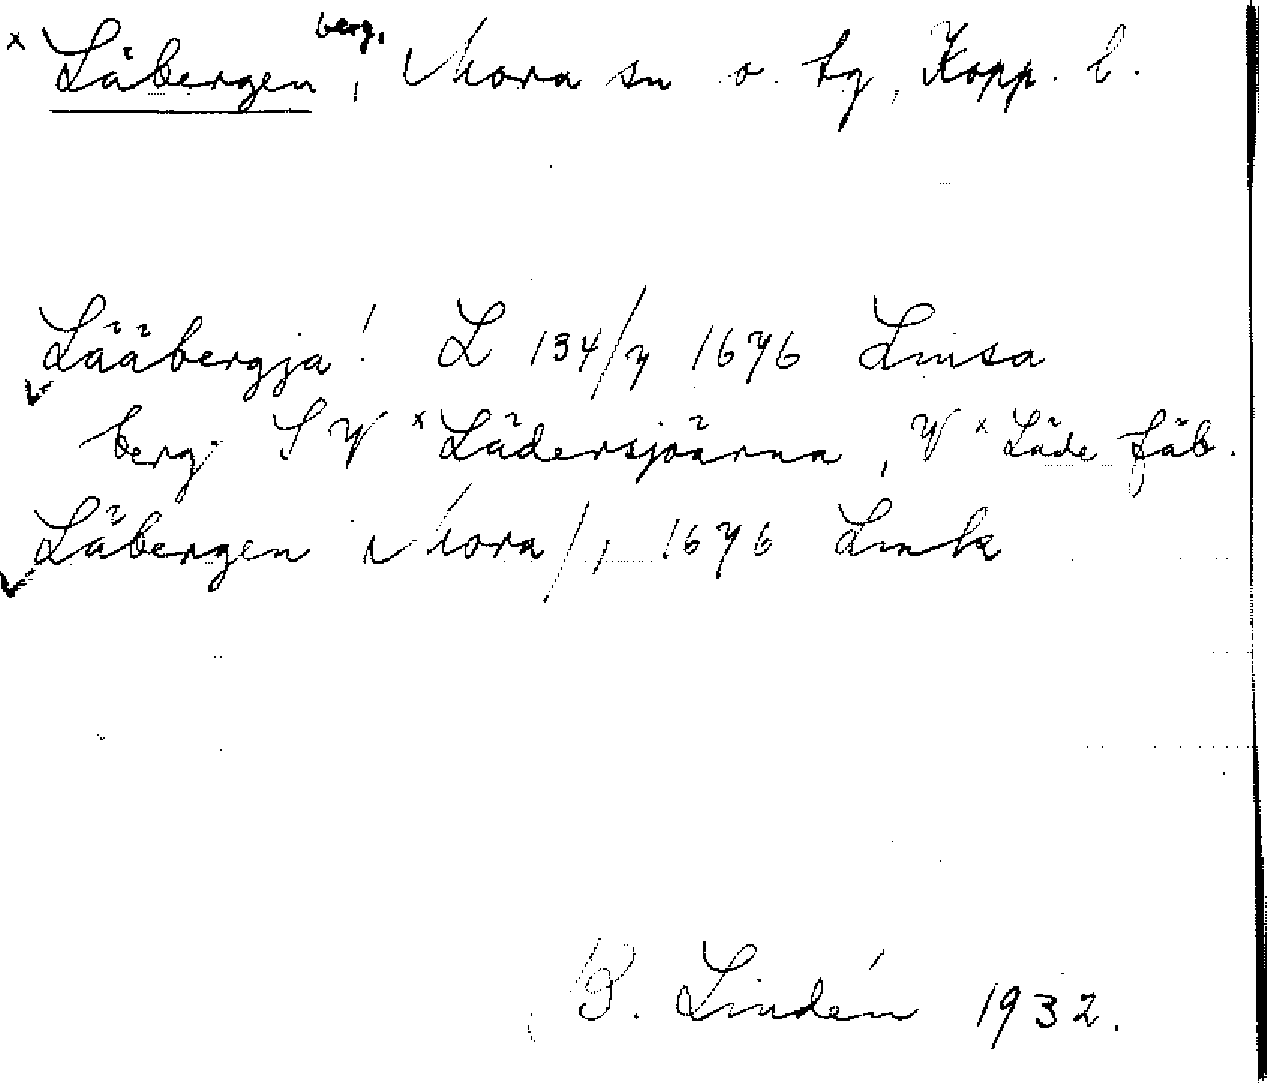 x Läbergen berg, Mora sn o. tg, Kopp. l.
Lääbergja! L 134/7 1676 Lmsa
berg SV x Lädersjöarna, V x Läde fäb.
Läbergen Mora/1 1676 Lmk
B. Lindén 1932.